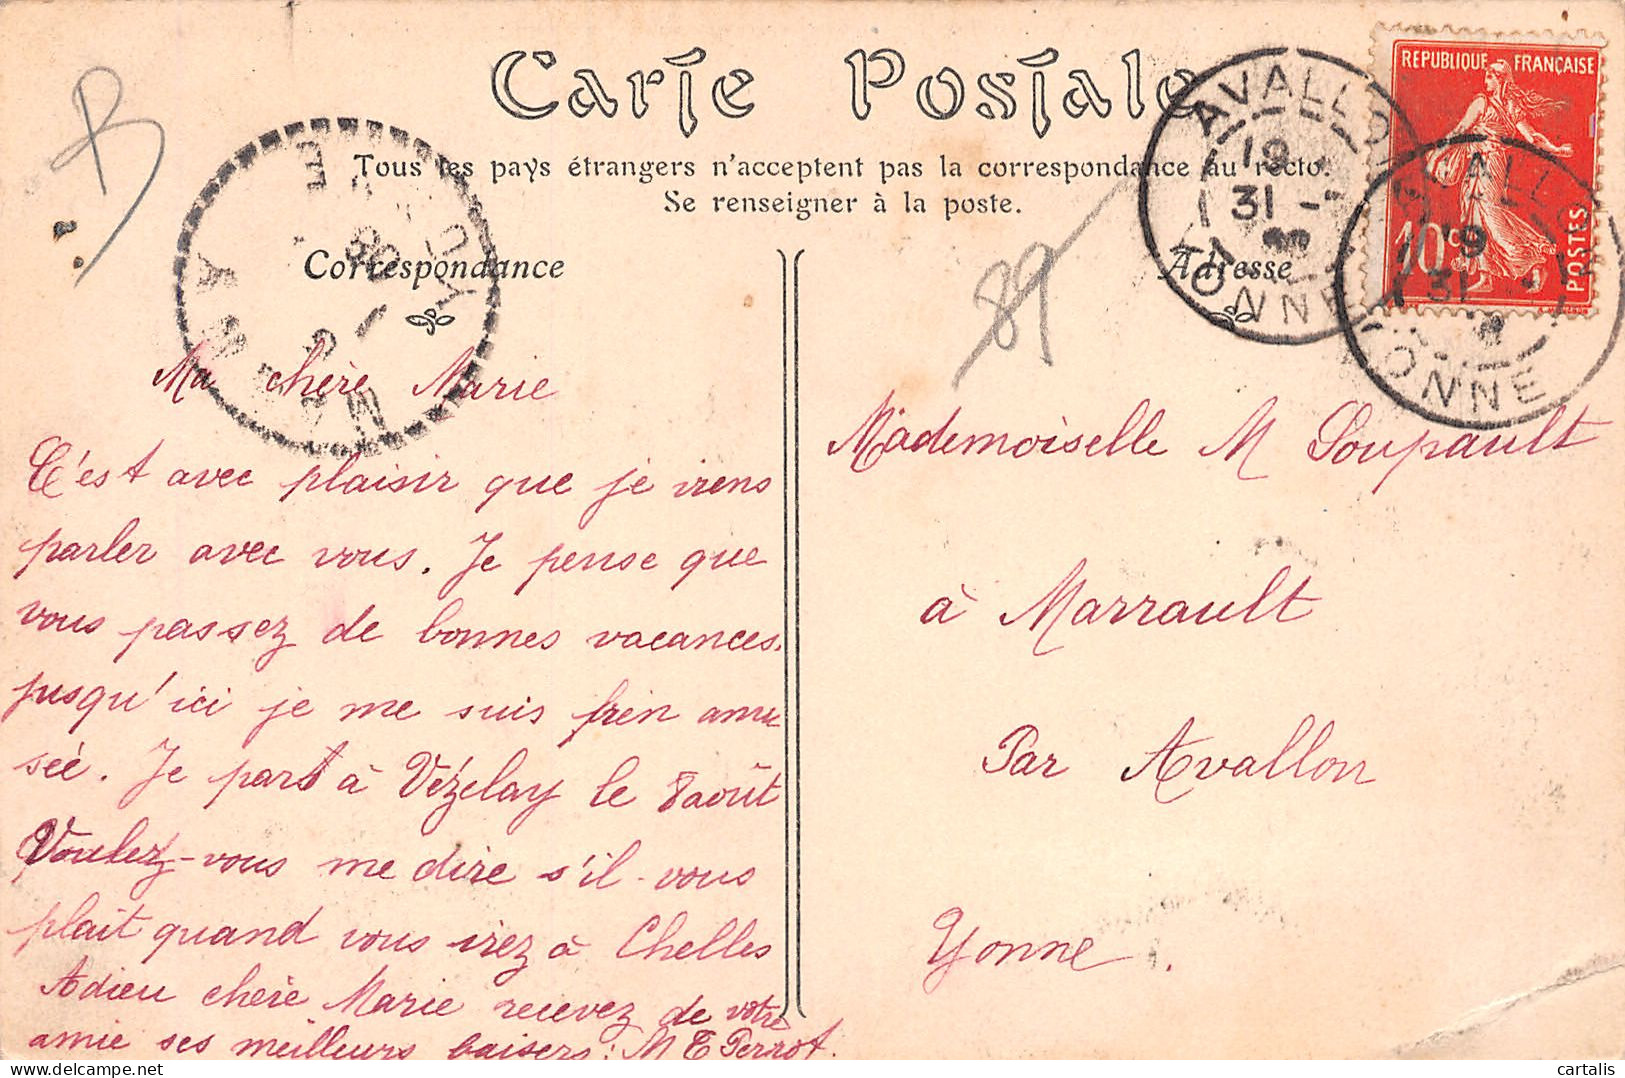 Carte Postale
Tous les pays étrangers n'acceptent pas la correspondance au recto.
Se renseigner à la poste.
Correspondance
Adresse
REPUBLIQUE FRANÇAISE
10c
POSTES
AVALLON
19
31 -
YONNE
AVALLON
19
31 -
YONNE
B
89
Ma chère Marie
C'est avec plaisir que je viens
parler avec vous. Je pense que
vous passez de bonnes vacances.
jusqu'ici je me suis bien amu
sée. Je pars à Vézelay le 8 août
Voulez-vous me dire s'il-vous
plait quand vous irez à Chelles
Adieu chère Marie recevez de votre
amie ses meilleurs baisers: M T Perrot.
Mademoiselle M Soupault
à Marrault
Par Avallon
Yonne.
cartalis